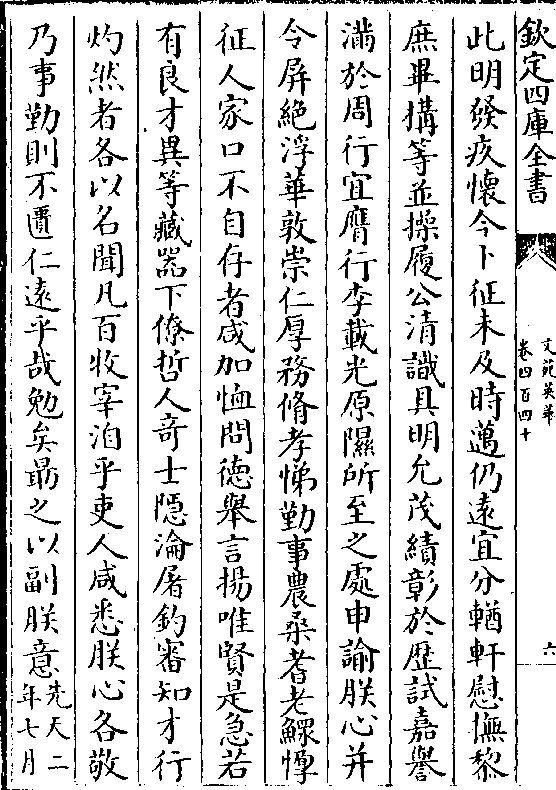 欽定四庫全書
文苑英華
卷四百四十
六
此明發疚懷今卜征未及時邁仍遠宜分輶軒慰撫黎
庶畢搆等並操履公清識具明允茂績彰於歴試嘉譽
滿於周行宜膺行李載光原隰所至之處申諭朕心并
令屏絶浮華敦崇仁厚務脩孝悌勤事農桑耆老鰥惸
征人家口不自存者咸加恤問德舉言揚唯賢是急若
有良才異等藏器下僚哲人竒士隱淪屠釣審知才行
灼然者各以名聞凡百牧宰洎乎吏人咸悉朕心各敬
乃事勤則不匱仁遠乎哉勉矣勗之以副朕意先天二
年七月